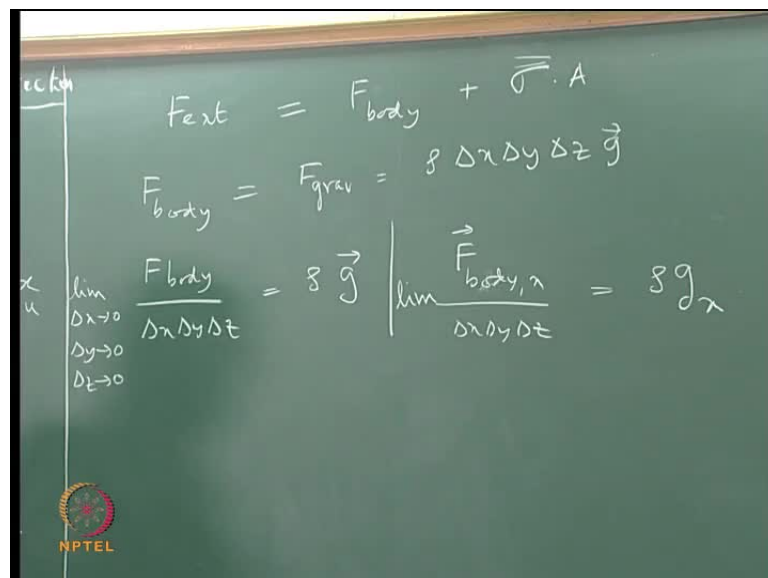 ection
F_ext = F_body + σ̿ . A
F_body = F_grav = ρ Δx Δy Δz g⃗
lim Δx→0 Δy→0 Δz→0 F_body / Δx Δy Δz = ρ g⃗ | lim F⃗_body,x / Δx Δy Δz = ρ g_x
NPTEL